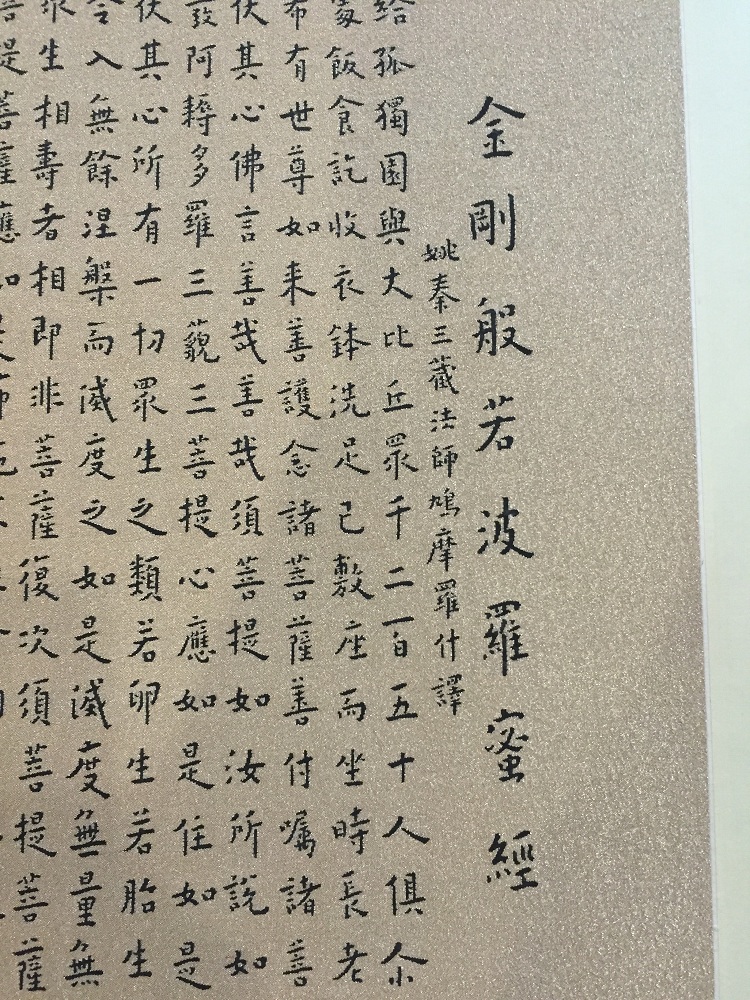 金剛般若波羅蜜經
姚秦三藏法師鳩摩羅什譯
給孤獨園與大比丘眾千二百五十人俱尒
飯食訖收衣鉢洗足已敷座而坐時長老
希有世尊如来善護念諸菩薩善付囑諸善
伏其心佛言善哉善哉須菩提如汝所說如
阿耨多羅三藐三菩提心應如是住如是
伏其心所有一切眾生之類若卵生若胎生
令入無餘涅槃而滅度之如是滅度無量無
眾生相壽者相即非菩薩復次須菩提菩薩
菩提菩薩應